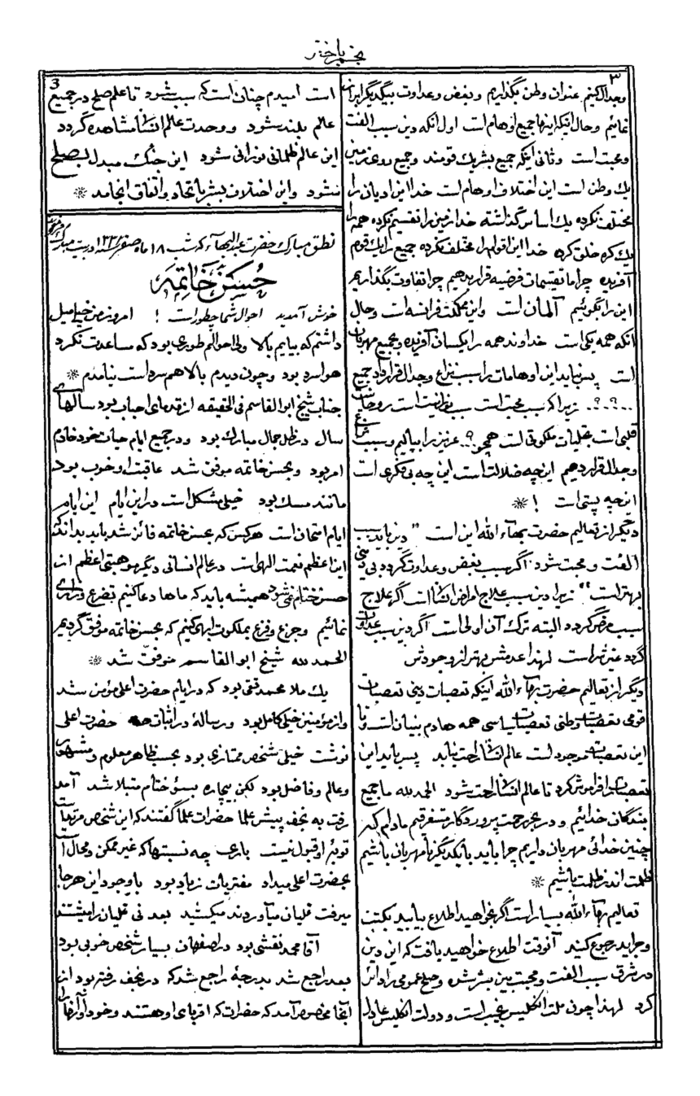 نجم باختر
۳
وجدال کنیم عنوان وطن بگذاریم و بغض و عداوت بیکدیگر ابراز
نمائیم و حال آنکه اینها جمیع اوهام است اول آنکه دین سبب الفت
و محبت است و ثانی اینکه جمیع بشر یک قومند و جمیع روی زمین
یک وطن است این اختلاف اوهام است خدا این ادیان را
مختلف نکرده یک اساس گذاشته خدا زمین را تقسیم نکرده همه را
یک کره خلق کرده خدا این اقوام را مختلف نکرده جمیع را یک قوم
آفریده چرا ما تقسیمات فرضیه قرار بدهیم چرا تفاوت بگذاریم
این را بگوئیم آلمان است و این مملکت فرانسه است و حال
آنکه همه یکی است خداوند همه را یکسان آفریده و بجمیع مهربان
است پس نباید این اوهامات را سبب نزاع و جدال قرار داد جمیع
۰۰۰؟۰۰؟ زیرا که سبب محبت است سبب نورانیت است روحانیت
قلبی است تجلیات ملکوتی است همچو ؟ عزیز را بیائیم و سبب نزاع
و جدال قرار دهیم این چه ضلالت است این چه بی فکری است
این چه پستی است ! *
دیگر از تعالیم حضرت بهاء الله این است " دین باید سبب
الفت و محبت شود اگر سبب بغض و عداوت گردد بی دینی
بهتر است " زیرا دین سبب علاج امراض انسان است اگر علاج
سبب مرض گردد البته ترک آن اولی است اگر دین سبب عداوت
گردد غیر خیر است لهذا عدمش بهتر از وجودش
دیگر از تعالیم حضرت بهاء الله اینکه تعصبات دینی تعصبات
قومی تعصبات وطنی تعصبات سیاسی همه هادم بنیان است تا
این تعصبات موجود است عالم انسانی راحت نیابد پس باید این
تعصبات را فراموش کرد تا عالم انسانی راحت شود الحمد لله ما جمیع
بندگان خدائیم و در بحر رحمت پروردگار مستغرقیم مادام که
چنین خدائی مهربان داریم چرا باید با یکدیگر نامهربان باشیم
ظلمت اندر ظلمت باشیم *
تعالیم بهاء الله بسیار است اگر بخواهید اطلاع بیابید بکتب
و جراید رجوع کنید آنوقت اطلاع خواهید یافت که این دین
در شرق سبب الفت و محبت بین بشر شده و صلح عمومی را دائر
کرد لهذا چون ملت انگلیس نجیب است و دولت انگلیس عادل
3
است امیدم چنان است که سبب شود تا علم صلح در جمیع
عالم بلند شود و وحدت عالم انسانی مشاهده گردد
این عالم ظلمانی نورانی شود این جنگ مبدل بصلح
شود و این اختلاف بشر باتحاد و اتفاق انجامد *
نطق مبارک حضرت عبدالبهاء که شب ۱۸ ماه صفر در بیت مبارک
حُسن خَاتِمَه
خوش آمدید احوال شما چطور است ! امروز من خیلی میل
داشتم که بیایم بالا ولی احوالم طوری بود که مساعدت نکرد
هوا سرد بود و چون دیدم بالا هم سرد است نیامدم *
جناب شیخ ابوالقاسم فی الحقیقه از قدمای احباب بود سالهای
سال در ظل جمال مبارک بود و در جمیع ایام حیات خود خادم
امر بود و بحسن خاتمه موفق شد عاقبت او خوب بود
مانند مسک بود خیلی مشکل است در این ایام این ایام
ایام امتحان است هر کس که بحسن خاتمه فائز شد باید بداند که
این اعظم نعمت الهی است در عالم انسانی دیگر موهبتی اعظم از
حسن ختام نمی شود همیشه باید که ماها دعا کنیم تضرع و زاری
نمائیم و جزع و فزع بملکوت ابهی کنیم که بحسن خاتمه موفق گردیم
الحمد لله شیخ ابوالقاسم موفق شد *
یک ملا محمد تقی بود که در ایام حضرت اعلی مؤمن شد
و از مؤمنین خیلی کامل بود و رساله در اثبات حضرت اعلی
نوشت خیلی شخص ممتازی بود بحسب ظاهر معلوم و مشهور
و عالم و فاضل بود لکن بیچاره بسوء ختام مبتلا شد آمد
رفت به نجف پیش علما حضرات علما گفتند که این شخص مرتد است
توبه او قبول نیست باری چه نسبتها که غیر ممکن و محال است
بحضرت اعلی میداد مفتریات زیاد بود با وجود این هر جا
میرفت قلیان میآوردند میکشید بعد نی قلیان را میشستند
آقا محمد نقشی بود در اصفهان بسیار شخص خوبی بود
بعد راجع شد بدرجۀ راجع شد که در نجف رفته بود از
آنجا مخصوص آمد که حضرات که اقربای او هستند و خود آوازها را